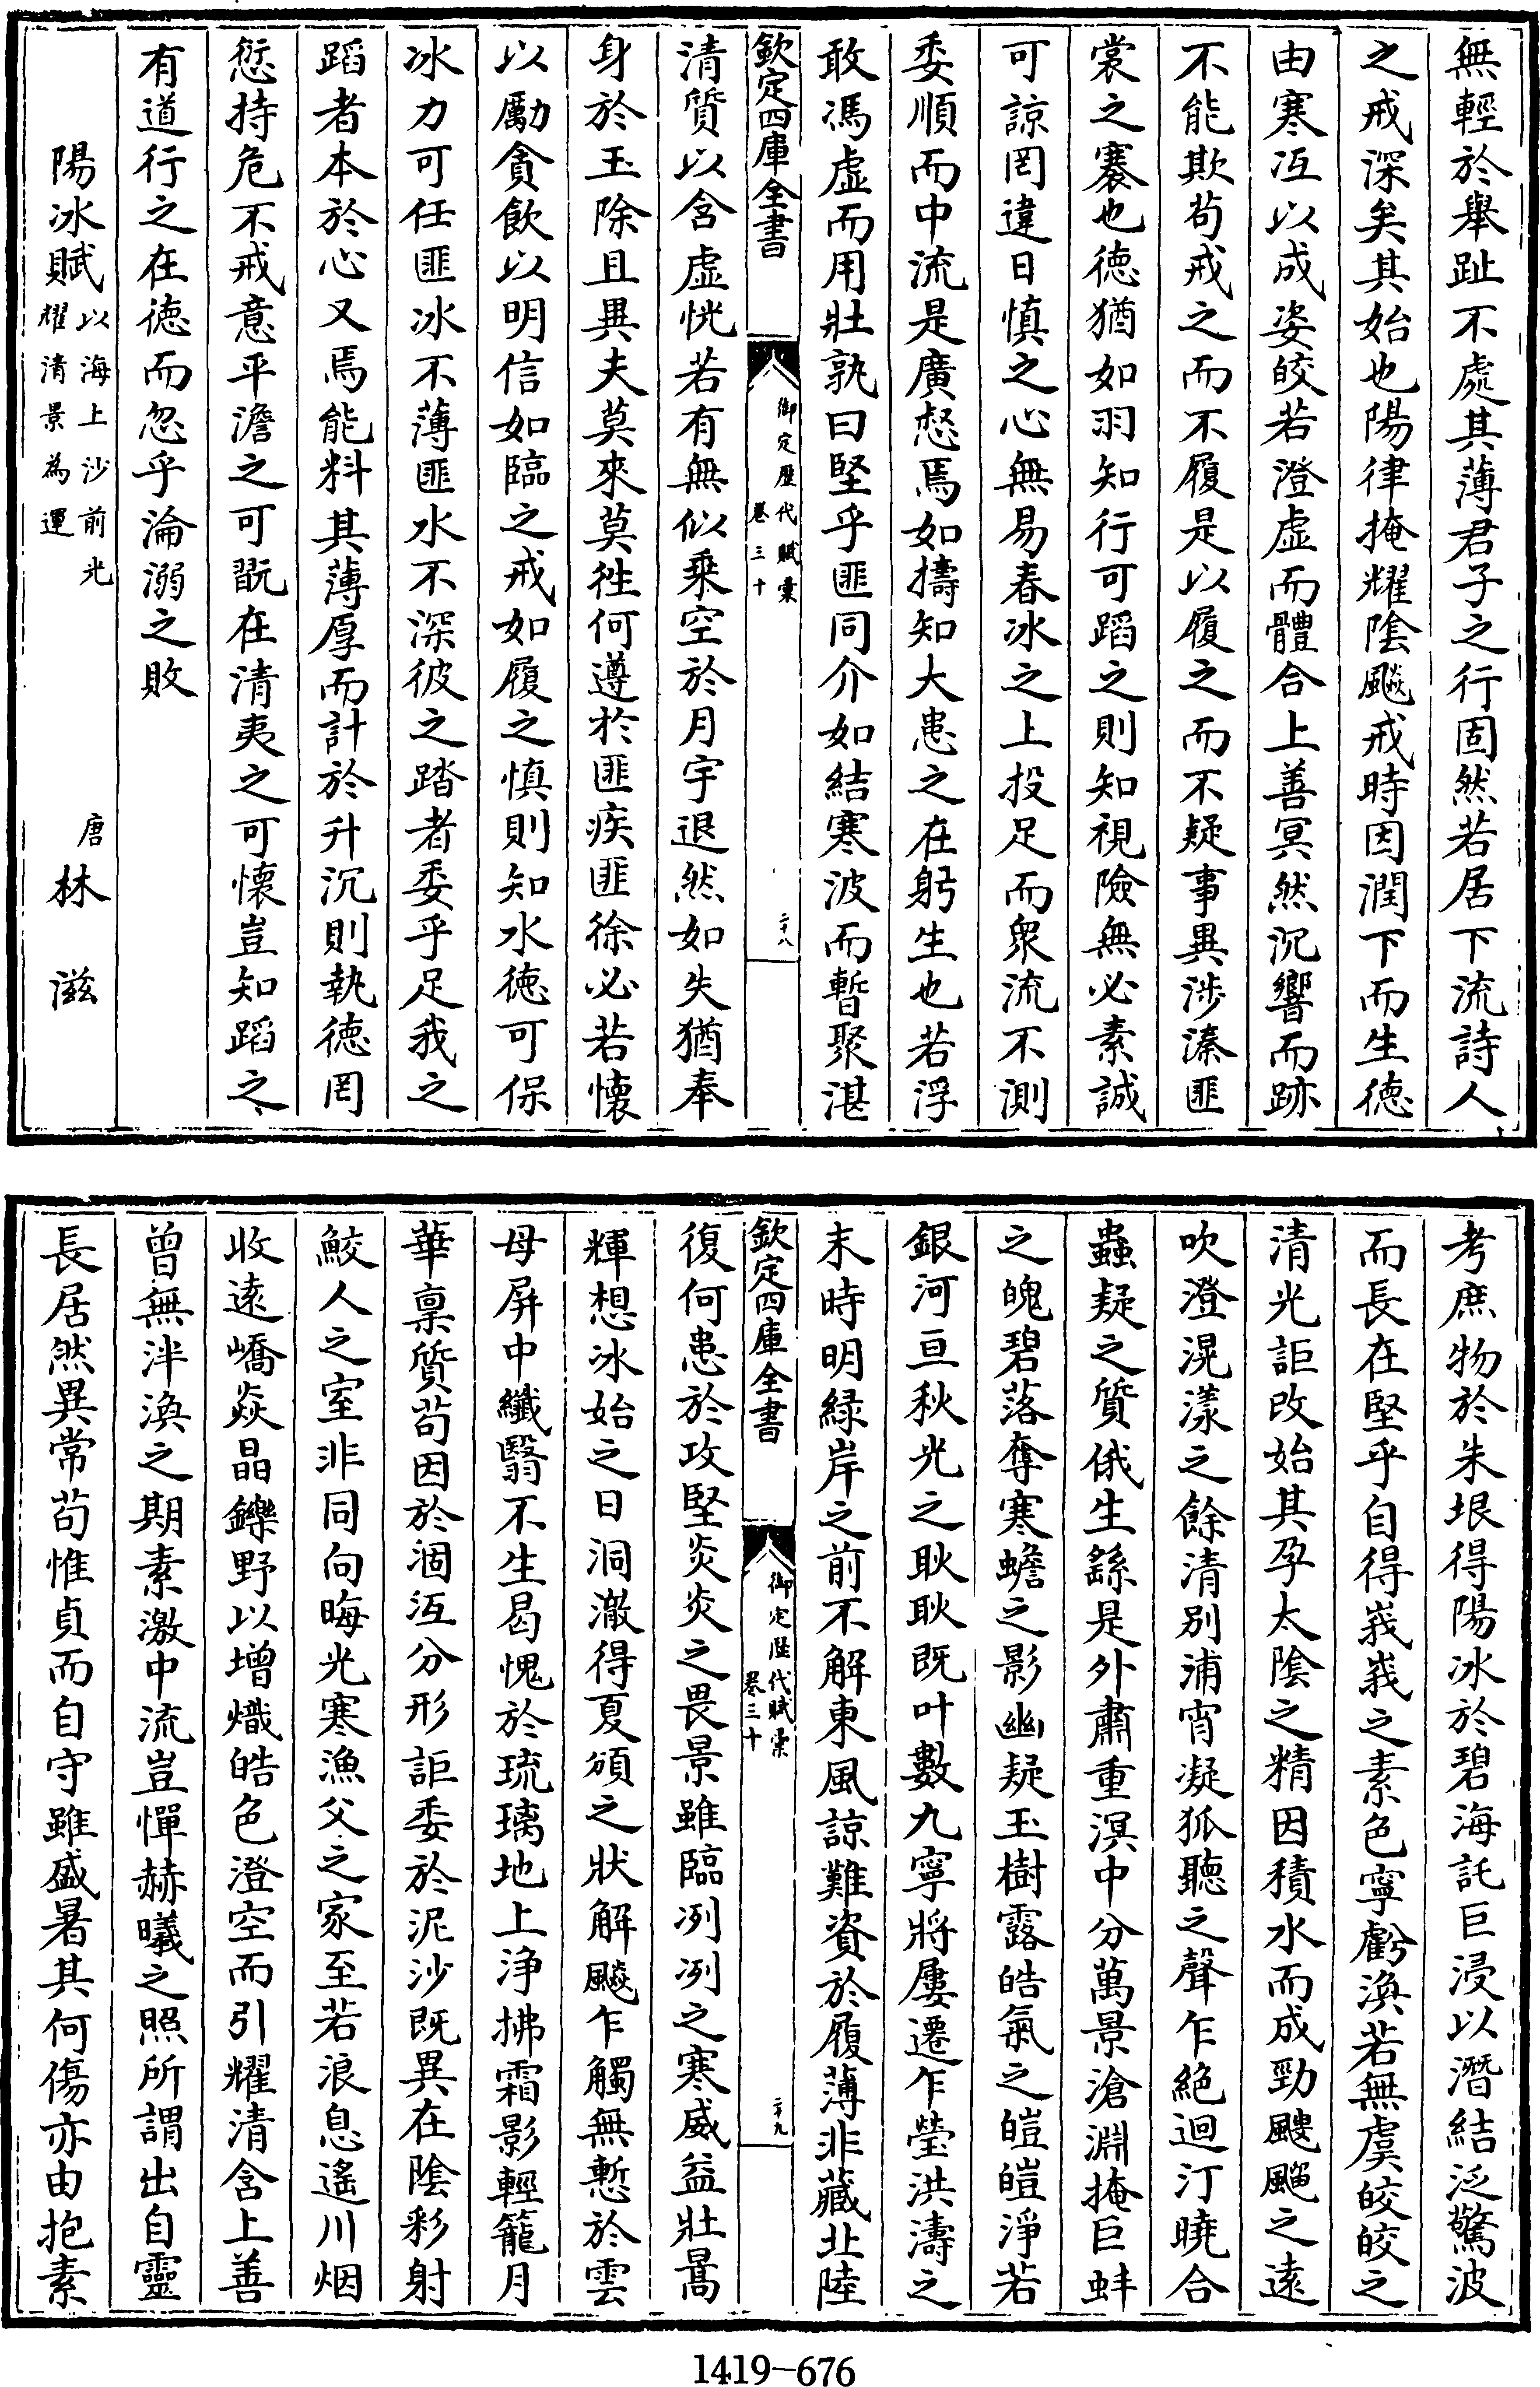 無輕於舉趾不處其薄君子之行固然若居下流詩人
之戒深矣其始也陽律掩耀陰飈戒時因潤下而生德
由寒冱以成姿皎若澄虛而體合上善冥然沉響而跡
不能欺茍戒之而不履是以履之而不疑事異涉溱匪
裳之褰也德猶如羽知行可蹈之則知視險無必素誠
可諒罔違日慎之心無易春冰之上投足而衆流不測
委順而中流是廣惄焉如擣知大患之在躬生也若浮
敢馮虛而用壯孰曰堅乎匪同介如結寒波而暫聚湛
欽定四庫全書
御定歷代賦彙
卷三十
二十八
清質以含虛恍若有無似乘空於月宇退然如失猶奉
身於玉除且異夫莫來莫徃何遵於匪疾匪徐必若懷
以勵貪飲以明信如臨之戒如履之慎則知水德可保
冰力可任匪冰不薄匪水不深彼之踏者委乎足我之
蹈者本於心又焉能料其薄厚而計於升沉則執德罔
愆持危不戒意平澹之可翫在清夷之可懷豈知蹈之
有道行之在德而忽乎淪溺之敗
陽冰賦以海上沙前光耀清景為運
唐林滋
考庶物於朱垠得陽冰於碧海託巨浸以潛結泛驚波
而長在堅乎自得峩峩之素色寧虧渙若無虞皎皎之
清光詎改始其孕太陰之精因積水而成勁颼飀之遠
吹澄滉漾之餘清別浦宵凝狐聽之聲乍絶迴汀曉合
蟲疑之質俄生繇是外肅重溟中分萬景滄淵掩巨蚌
之魄碧落奪寒蟾之影幽疑玉樹露皓氣之皚皚淨若
銀河亘秋光之耿耿既叶數九寧將屢遷乍瑩洪濤之
末時明綠岸之前不解東風諒難資於履薄非藏北陸
欽定四庫全書
御定歷代賦彙
卷三十
二十九
復何患於攻堅炎炎之畏景雖臨冽冽之寒威益壯暠
輝想冰始之日洞澈得夏頒之狀解飈乍觸無慙於雲
母屏中纖翳不生曷愧於琉璃地上浄拂霜影輕籠月
華稟質茍因於涸冱分形詎委於泥沙既異在陰彩射
鮫人之室非同向晦光寒漁父之家至若浪息遙川烟
收遠嶠焱晶鑠野以增熾皓色澄空而引耀清含上善
曾無泮渙之期素激中流豈憚赫曦之照所謂出自靈
長居然異常茍惟貞而自守雖盛暑其何傷亦由抱素
1419-676